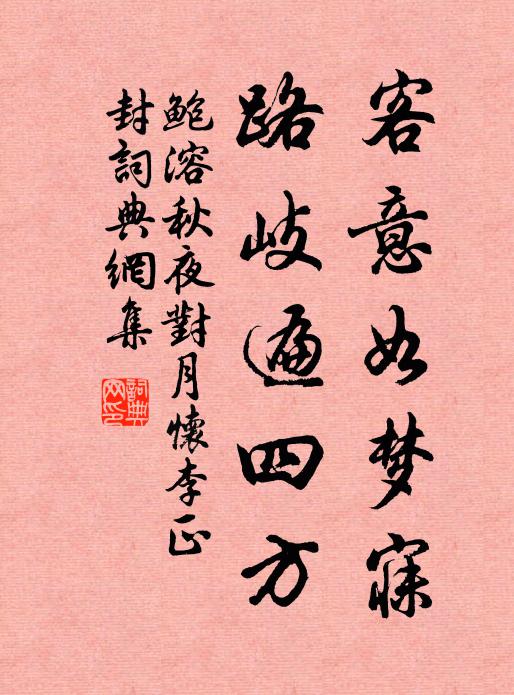 客意如梦寐
路岐遍四方
鲍溶秋夜對月懷李正
封詞典網集
詞典
网印